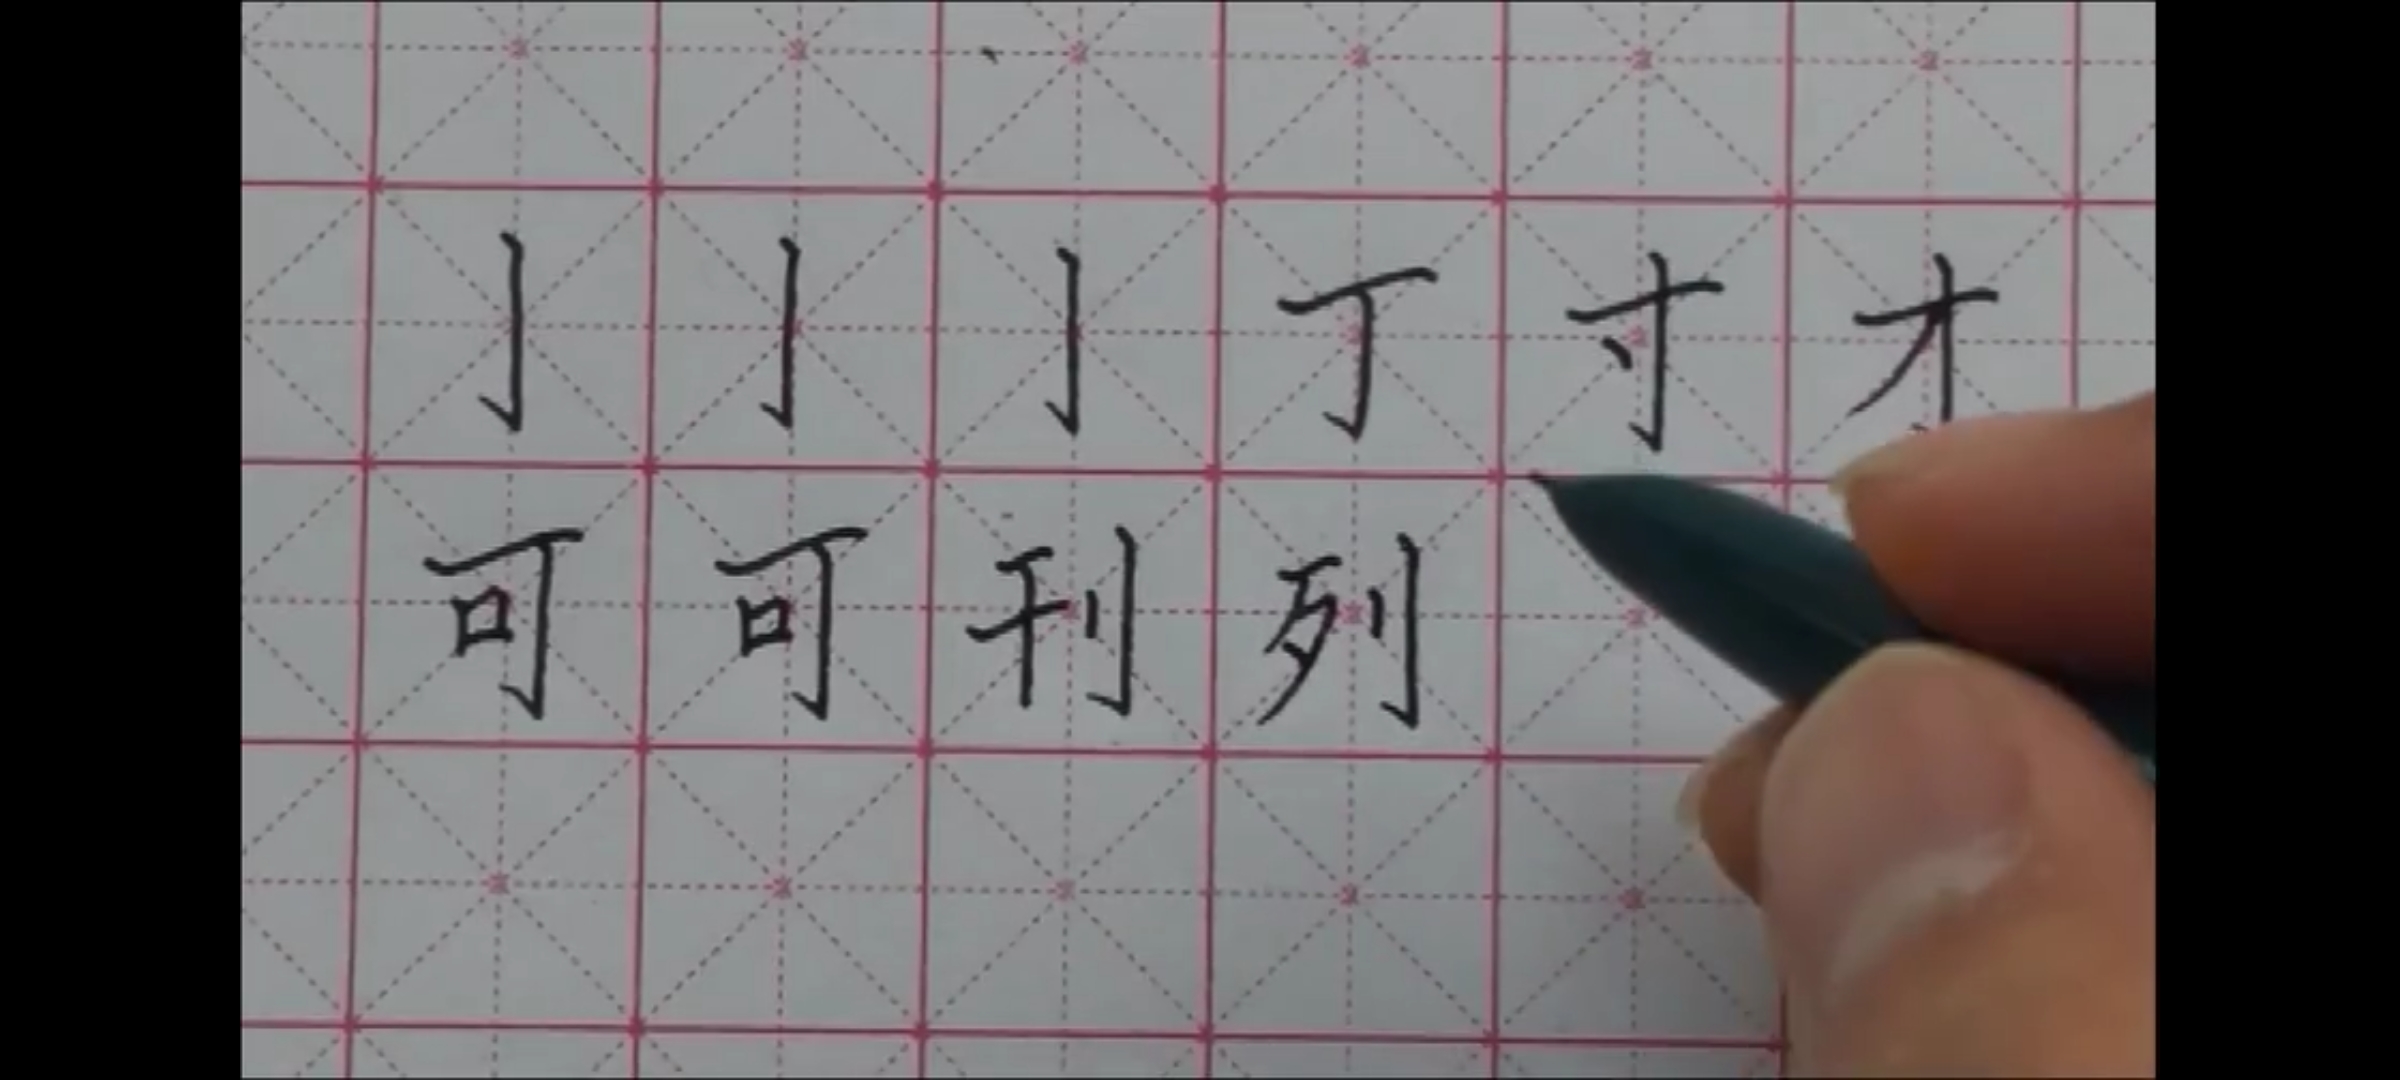 亅亅亅丁寸才
可可刊列